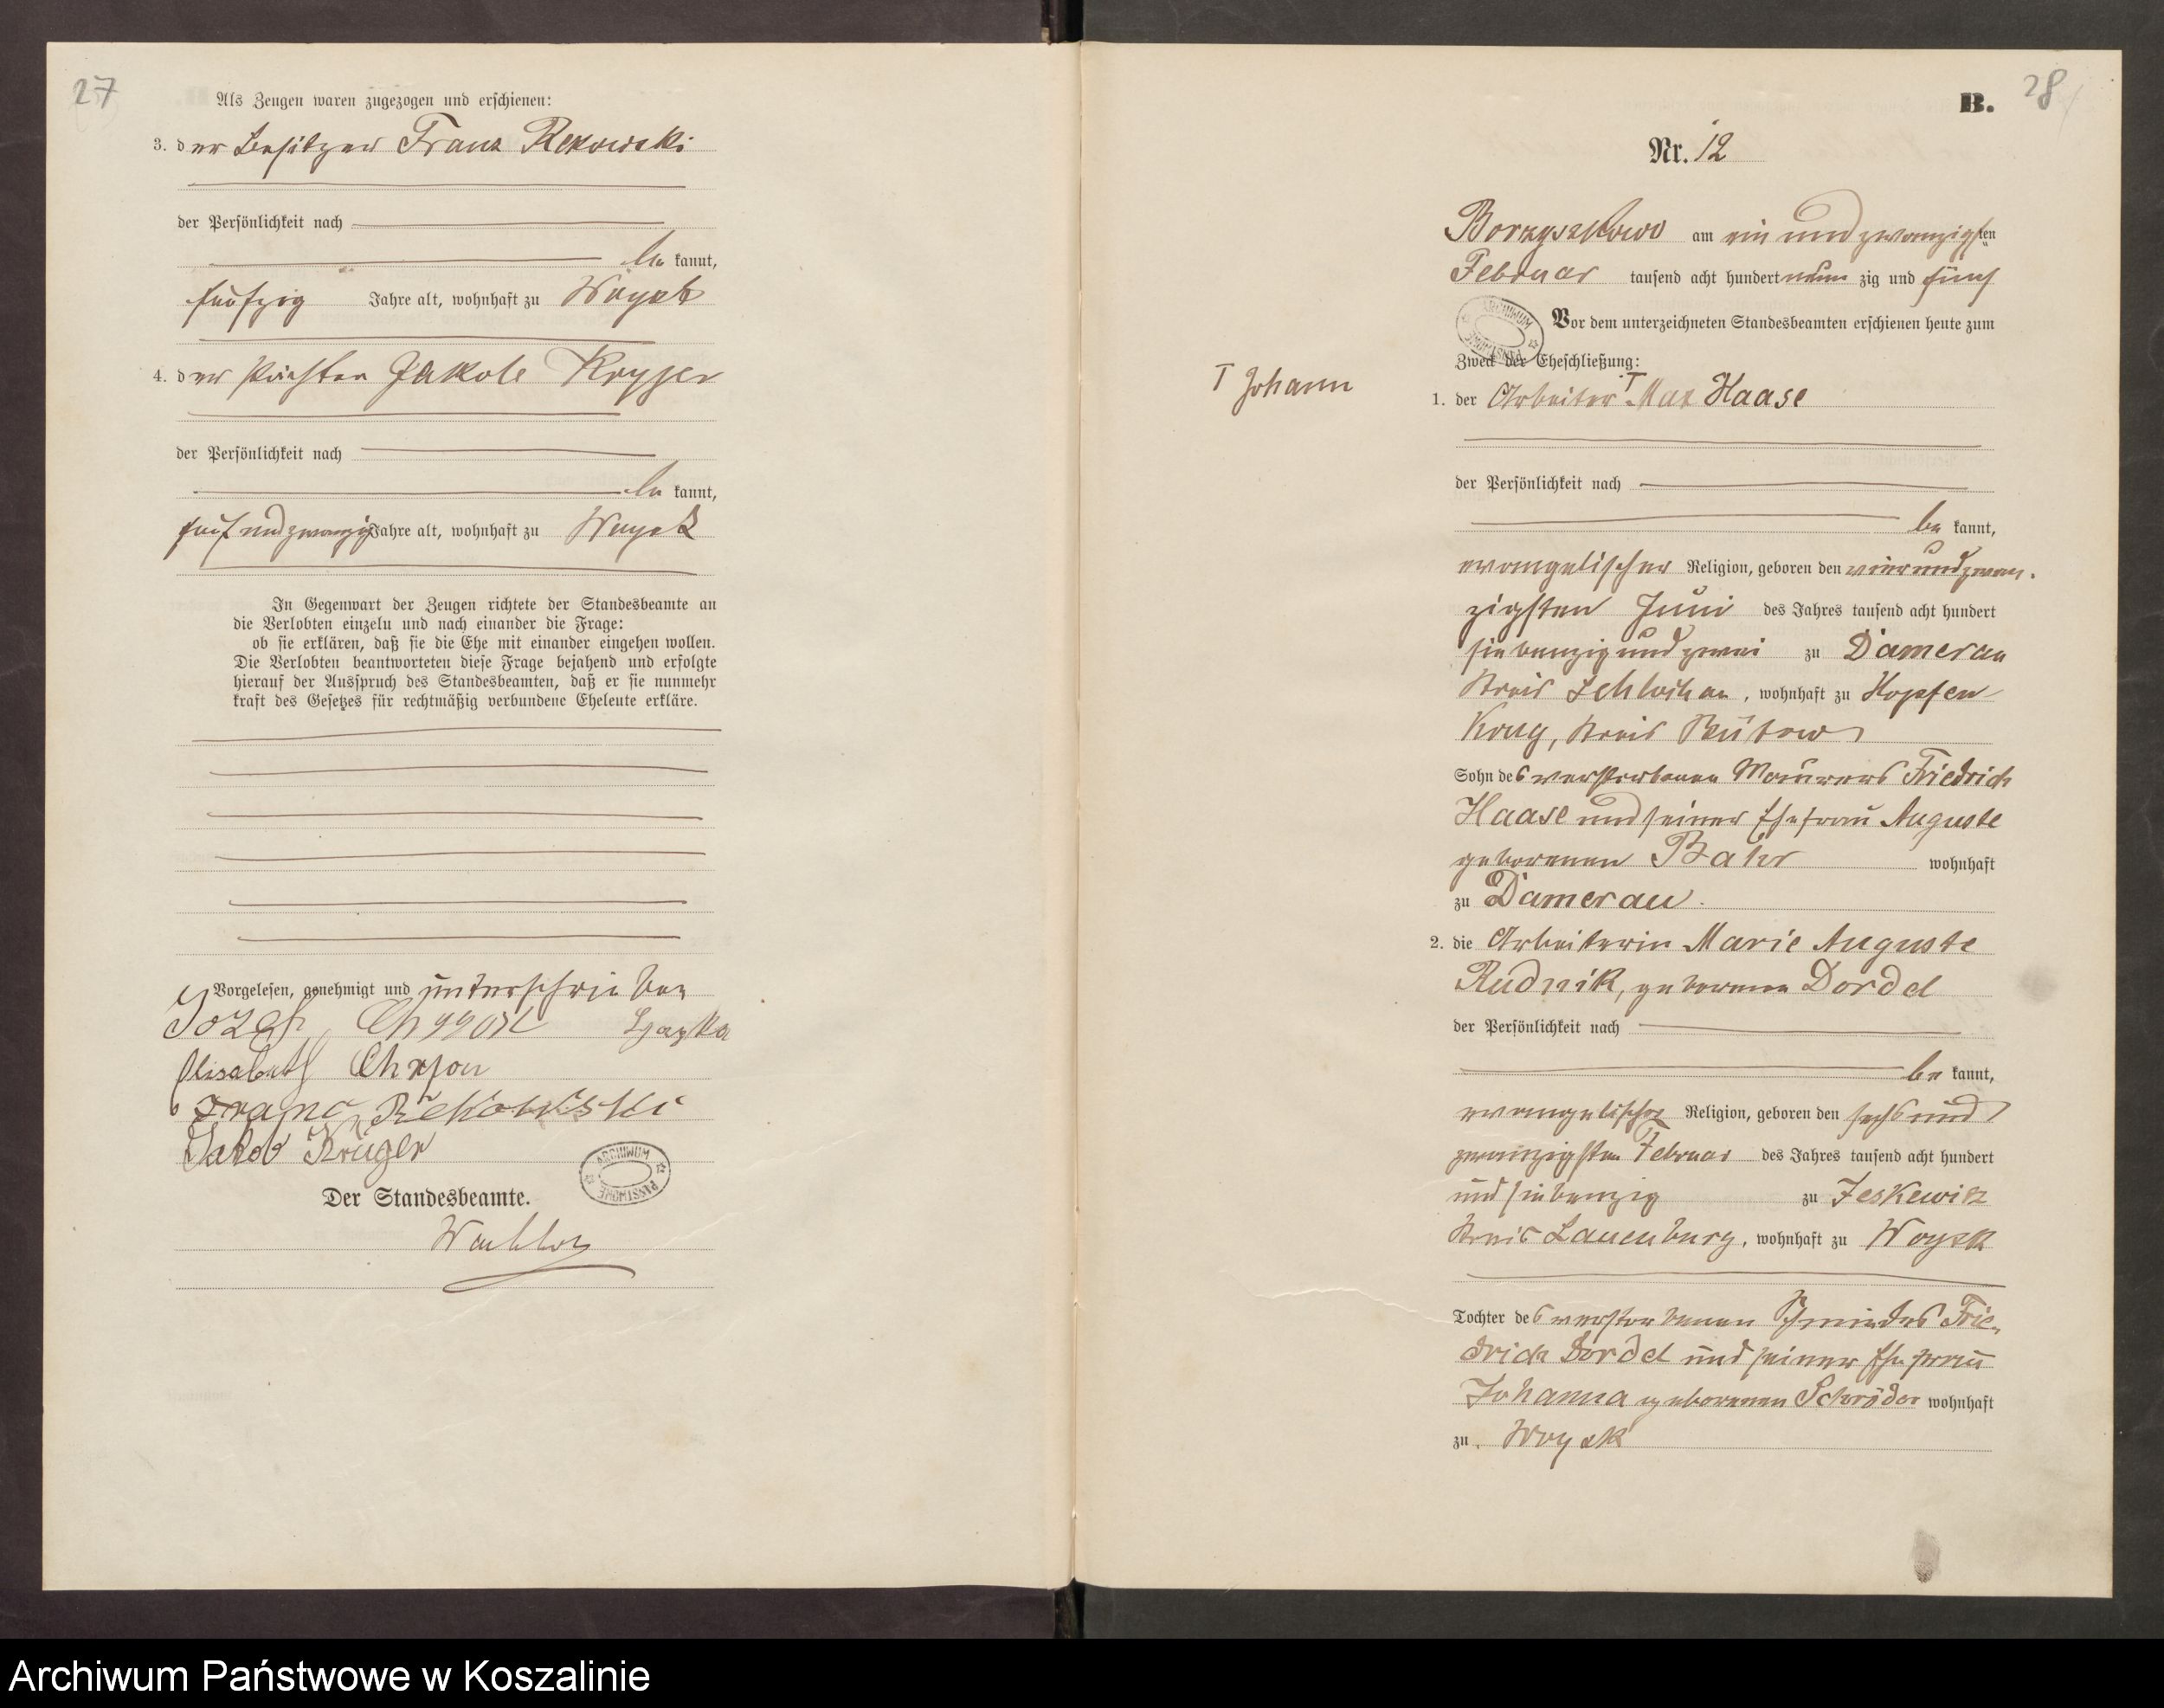 27
Als Zeugen waren zugezogen und erschienen:
3. der Besitzer Franz Rekowski
der Persönlichkeit nach
be kannt,
fünfzig Jahre alt, wohnhaft zu Woysk
4. der Jakob
der Persönlichkeit nach
be kannt,
fünfundzwanzig Jahre alt, wohnhaft zu Woysk
In Gegenwart der Zeugen richtete der Standesbeamte an
die Verlobten einzeln und nach einander die Frage:
ob sie erklären, daß sie die Ehe mit einander eingehen wollen.
Die Verlobten beantworteten diese Frage bejahend und erfolgte
hierauf der Ausspruch des Standesbeamten, daß er sie nunmehr
kraft des Gesetzes für rechtmäßig verbundene Eheleute erkläre.
Vorgelesen, genehmigt und unterschrieben
Jozef
Elisabeth
Franc Rekowski
Jakob Krüger
ARCHIWUM PAŃSTWOWE
Der Standesbeamte.
28
B.
Nr. 12
Borzyszkowo am ein und zwanzigsten
Februar tausend acht hundert neun zig und fünf
ARCHIWUM PAŃSTWOWE
Vor dem unterzeichneten Standesbeamten erschienen heute zum
Zweck der Eheschließung:
T Johann
1. der Arbeiter T Max Haase
der Persönlichkeit nach
be kannt,
evangelischer Religion, geboren den vierundzwan-
zigsten Juni des Jahres tausend acht hundert
siebenzig und zwei zu Damerau
Kreis Schlochau, wohnhaft zu Hopfen
Krug, Kreis Bütow
Sohn des verstorbenen Maurers Friedrich
Haase und seiner Ehefrau Auguste
geborenen Bahr wohnhaft
zu Damerau.
2. die Arbeiterin Marie Auguste
Rudnik, geborene Dordel
der Persönlichkeit nach
be kannt,
evangelischer Religion, geboren den sechsund
zwanzigsten Februar des Jahres tausend acht hundert
und siebenzig zu Jeskewitz
Kreis Lauenburg, wohnhaft zu Woysk
Tochter des verstorbenen Schmiedes Frie-
drich Dordel und seiner Ehefrau
Johanna geborenen Schröder wohnhaft
zu Woysk
Archiwum Państwowe w Koszalinie